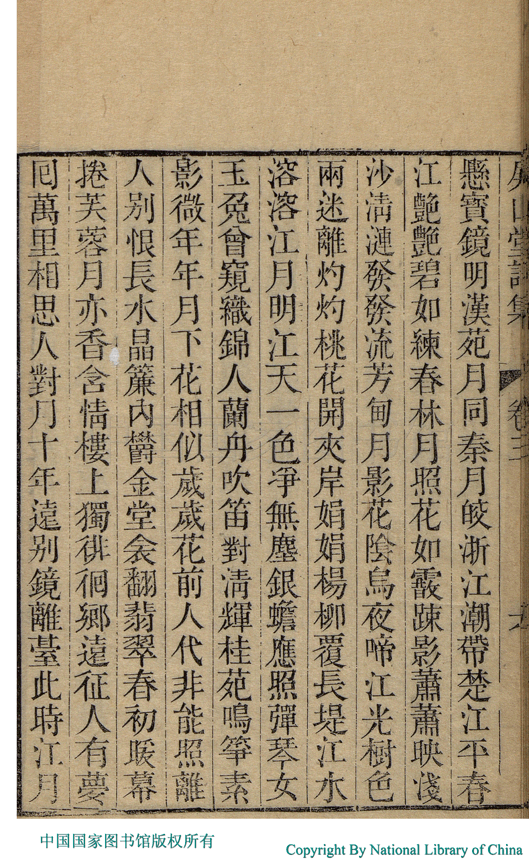 屏山堂詩集 卷三
懸寳鏡明漢苑月同秦月皎浙江潮帶楚江平春
江艷艷碧如練春林月照花如霰踈影蕭蕭映淺
沙淸漣發發流芳甸月影花陰烏夜啼江光樹色
兩迷離灼灼桃花開夾岸娟娟楊柳覆長堤江水
溶溶江月明江天一色凈無塵銀蟾應照彈琴女
玉兔曾窺織錦人蘭舟吹笛對淸輝桂苑鳴箏素
影微年年月下花相似歲歲花前人代非能照離
人別恨長水晶簾內鬱金堂衾翻翡翠春初暖幕
捲芙蓉月亦香含情樓上獨徘徊鄉遠征人有夢
囘萬里相思人對月十年遠別鏡離臺此時江月
中国国家图书馆版权所有
Copyright By National Library of China